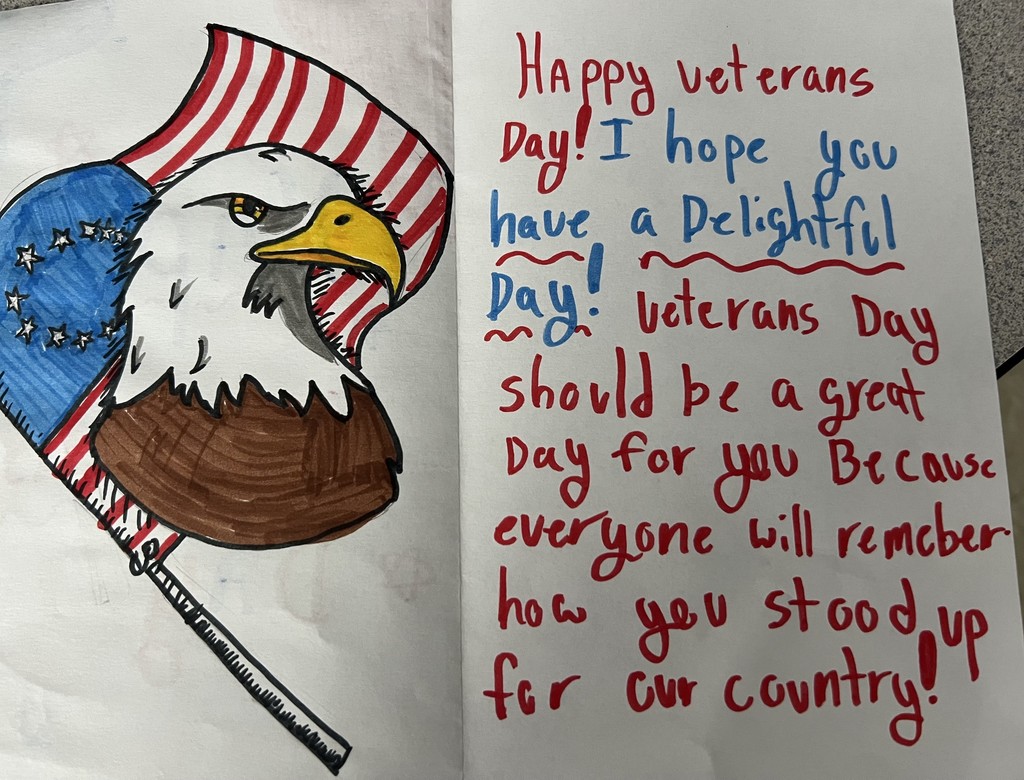 HAppy veterans
Day! I hope you
have a Delightful
Day! veterans Day
should be a great
Day for you Because
everyone will remcber
how you stood up
for our country!